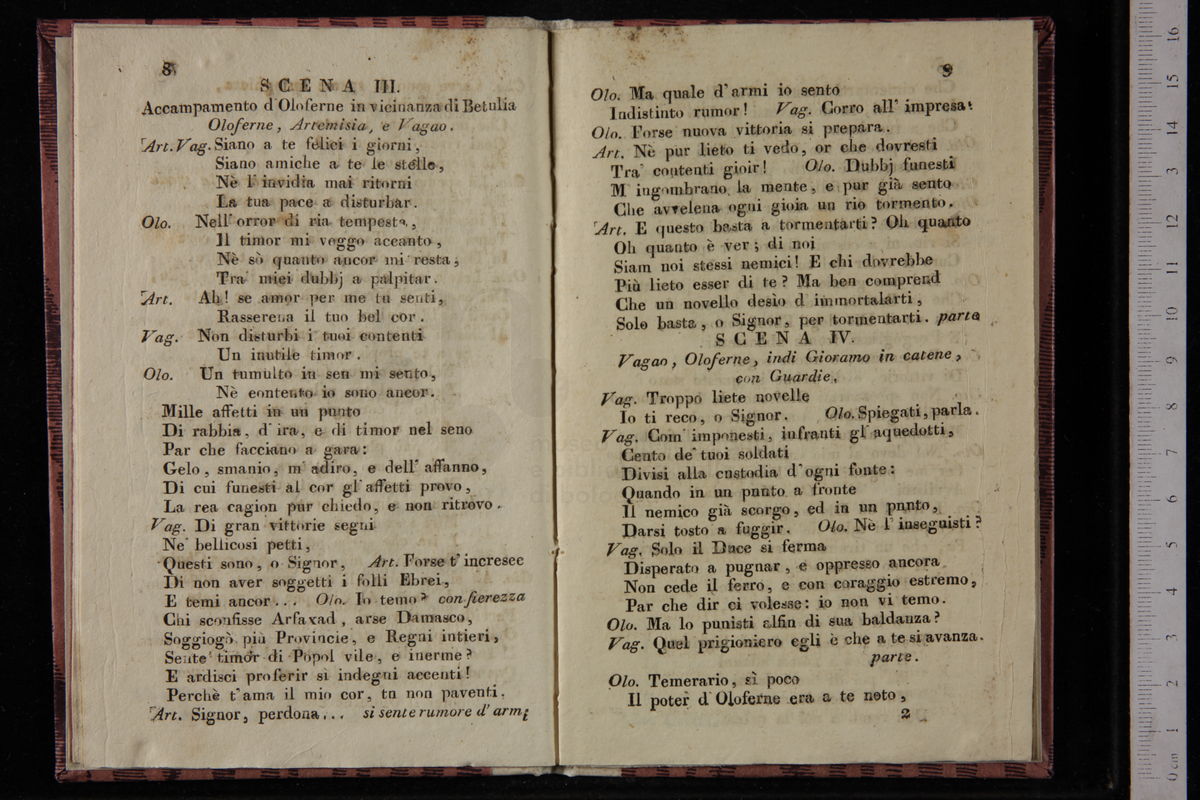 8
SCENA III.
Accampamento d'Oloferne in vicinanza di Betulia
Oloferne, Artemisia, e Vagao.
Art. Vag. Siano a te felici i giorni,
Siano amiche a te le stelle,
Nè l'invidia mai ritorni
La tua pace a disturbar.
Olo. Nell'orror di ria tempesta,
Il timor mi veggo accanto,
Nè sò quanto ancor mi resta,
Tra' miei dubbj a palpitar.
Art. Ah! se amor per me tu senti,
Rasserena il tuo bel cor.
Vag. Non disturbi i tuoi contenti
Un inutile timor.
Olo. Un tumulto in sen mi sento,
Nè contento io sono ancor.
Mille affetti in un punto
Di rabbia, d'ira, e di timor nel seno
Par che facciano a gara:
Gelo, smanio, m'adiro, e dell'affanno,
Di cui funesti al cor gl'affetti provo,
La rea cagion pur chiedo, e non ritrovo.
Vag. Di gran vittorie segni
Ne' bellicosi petti,
Questi sono, o Signor, Art. Forse t'incresce
Di non aver soggetti i folli Ebrei,
E temi ancor... Olo. Io temo? con fierezza
Chi sconfisse Arfaxad, arse Damasco,
Soggiogò più Provincie, e Regni intieri,
Sente timor di Popol vile, e inerme?
E ardisci proferir sì indegni accenti!
Perchè t'ama il mio cor, tu non paventi.
Art. Signor, perdona... si sente rumore d'armi
9
Olo. Ma quale d'armi io sento
Indistinto rumor! Vag. Corro all'impresa.
Olo. Forse nuova vittoria si prepara.
Art. Nè pur lieto ti vedo, or che dovresti
Tra' contenti gioir! Olo. Dubbj funesti
M'ingombrano la mente, e pur già sento
Che avvelena ogni gioia un rio tormento.
Art. E questo basta a tormentarti? Oh quanto
Oh quanto è ver; di noi
Siam noi stessi nemici! E chi dovrebbe
Più lieto esser di te? Ma ben comprend
Che un novello desìo d'immortalarti,
Solo basta, o Signor, per tormentarti. parte
SCENA IV.
Vagao, Oloferne, indi Gioramo in catene,
con Guardie,
Vag. Troppo liete novelle
Io ti reco, o Signor. Olo. Spiegati, parla.
Vag. Com'imponesti, infranti gl'aquedotti,
Cento de'tuoi soldati
Divisi alla custodia d'ogni fonte:
Quando in un punto a fronte
Il nemico già scorgo, ed in un punto,
Darsi tosto a fuggir. Olo. Nè l'inseguisti?
Vag. Solo il Duce si ferma
Disperato a pugnar, e oppresso ancora
Non cede il ferro, e con coraggio estremo,
Par che dir ci volesse: io non vi temo.
Olo. Ma lo punisti alfin di sua baldanza?
Vag. Quel prigioniero egli è che a te si avanza.
parte.
Olo. Temerario, sì poco
Il poter d'Oloferne era a te noto,
2